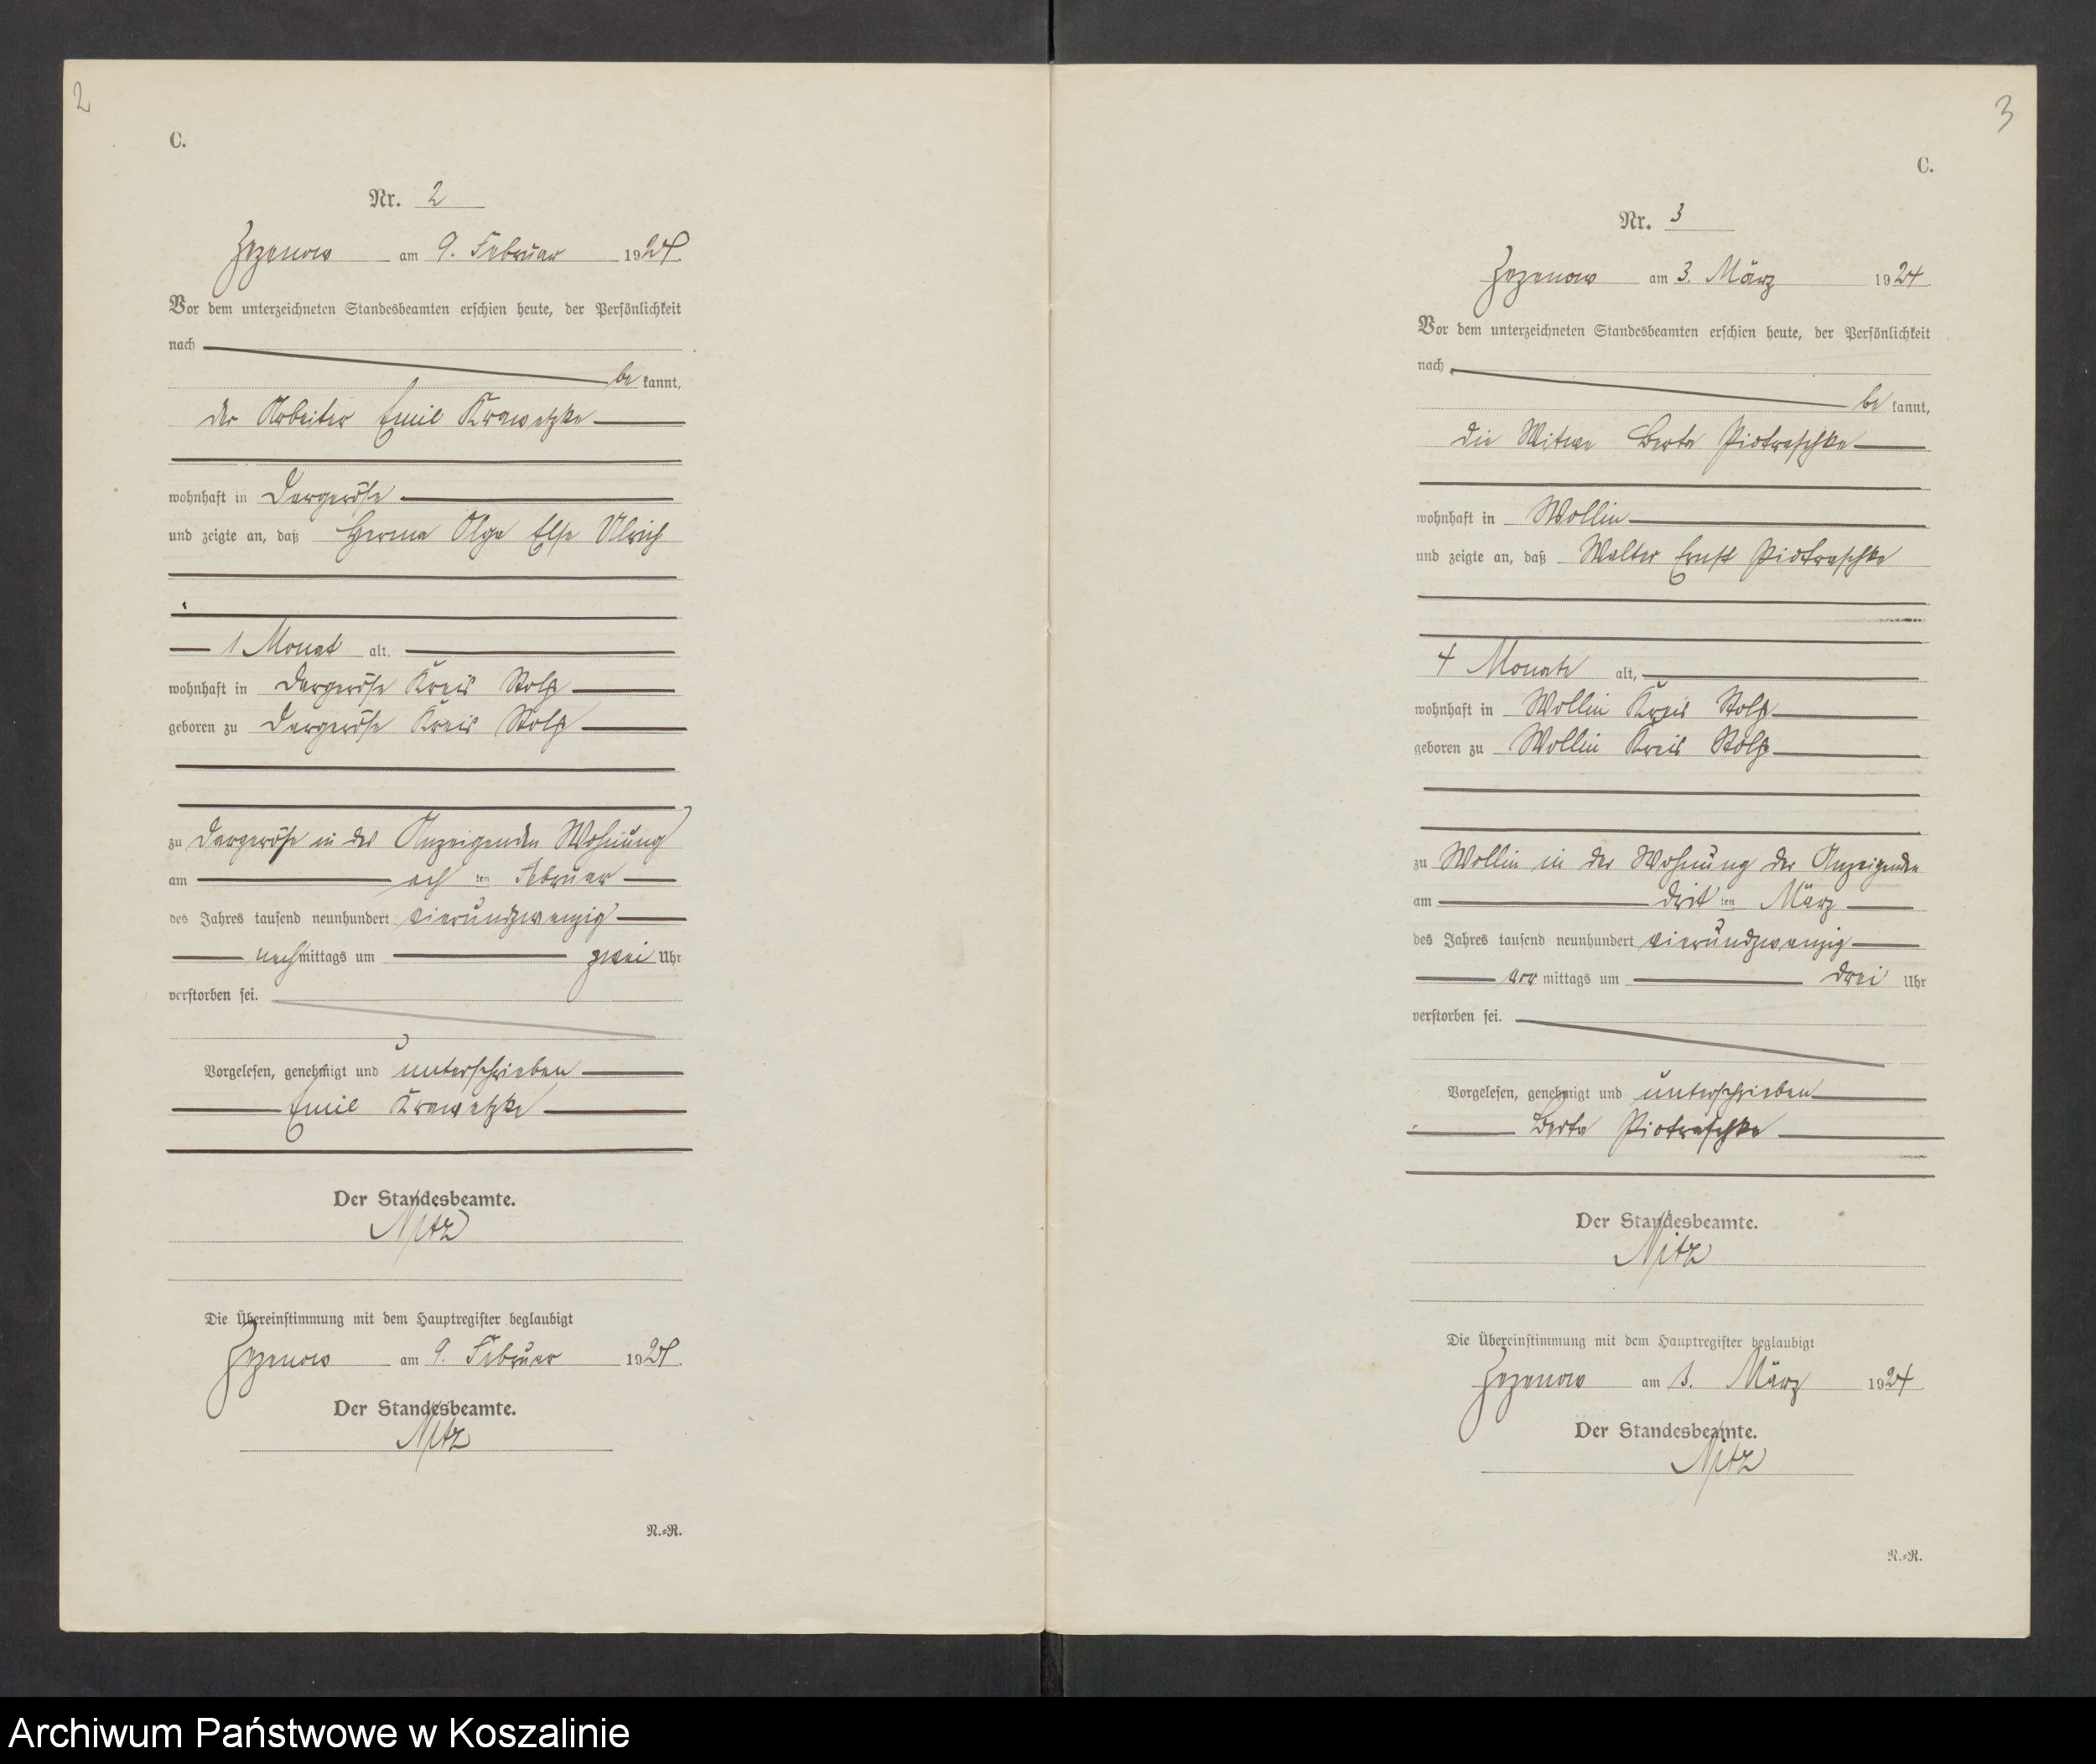 2
C.
Nr. 2
Zezenow am 9. Februar 1924.
Vor dem unterzeichneten Standesbeamten erschien heute, der Persönlichkeit
nach
be kannt,
der Arbeiter Emil Krawetzke
wohnhaft in Dargeröse
und zeigte an, daß Herma Olga Else Ulrich
1 Monat alt,
wohnhaft in Dargeröse Kreis Stolp
geboren zu Dargeröse Kreis Stolp
zu Dargeröse in des Anzeigenden Wohnung
am ach ten Februar
des Jahres tausend neunhundert vierundzwanzig
nachmittags um zwei Uhr
verstorben sei.
Vorgelesen, genehmigt und unterschrieben
Emil Krawetzke
Der Standesbeamte.
Nitz
Die Übereinstimmung mit dem Hauptregister beglaubigt
Zezenow am 9. Februar 1924.
Der Standesbeamte.
Nitz
N.=R.
3
C.
Nr. 3
Zezenow am 3. März 1924.
Vor dem unterzeichneten Standesbeamten erschien heute, der Persönlichkeit
nach
be kannt,
die Witwe Berta Piotraschke
wohnhaft in Wollin
und zeigte an, daß Walter Ernst Piotraschke
4 Monate alt,
wohnhaft in Wollin Kreis Stolp
geboren zu Wollin Kreis Stolp
zu Wollin in der Wohnung der Anzeigenden
am drit ten März
des Jahres tausend neunhundert vierundzwanzig
vor mittags um drei Uhr
verstorben sei.
Vorgelesen, genehmigt und unterschrieben
Berta Piotraschke
Der Standesbeamte.
Nitz
Die Übereinstimmung mit dem Hauptregister beglaubigt
Zezenow am 3. März 1924
Der Standesbeamte.
Nitz
N.=R.
Archiwum Państwowe w Koszalinie